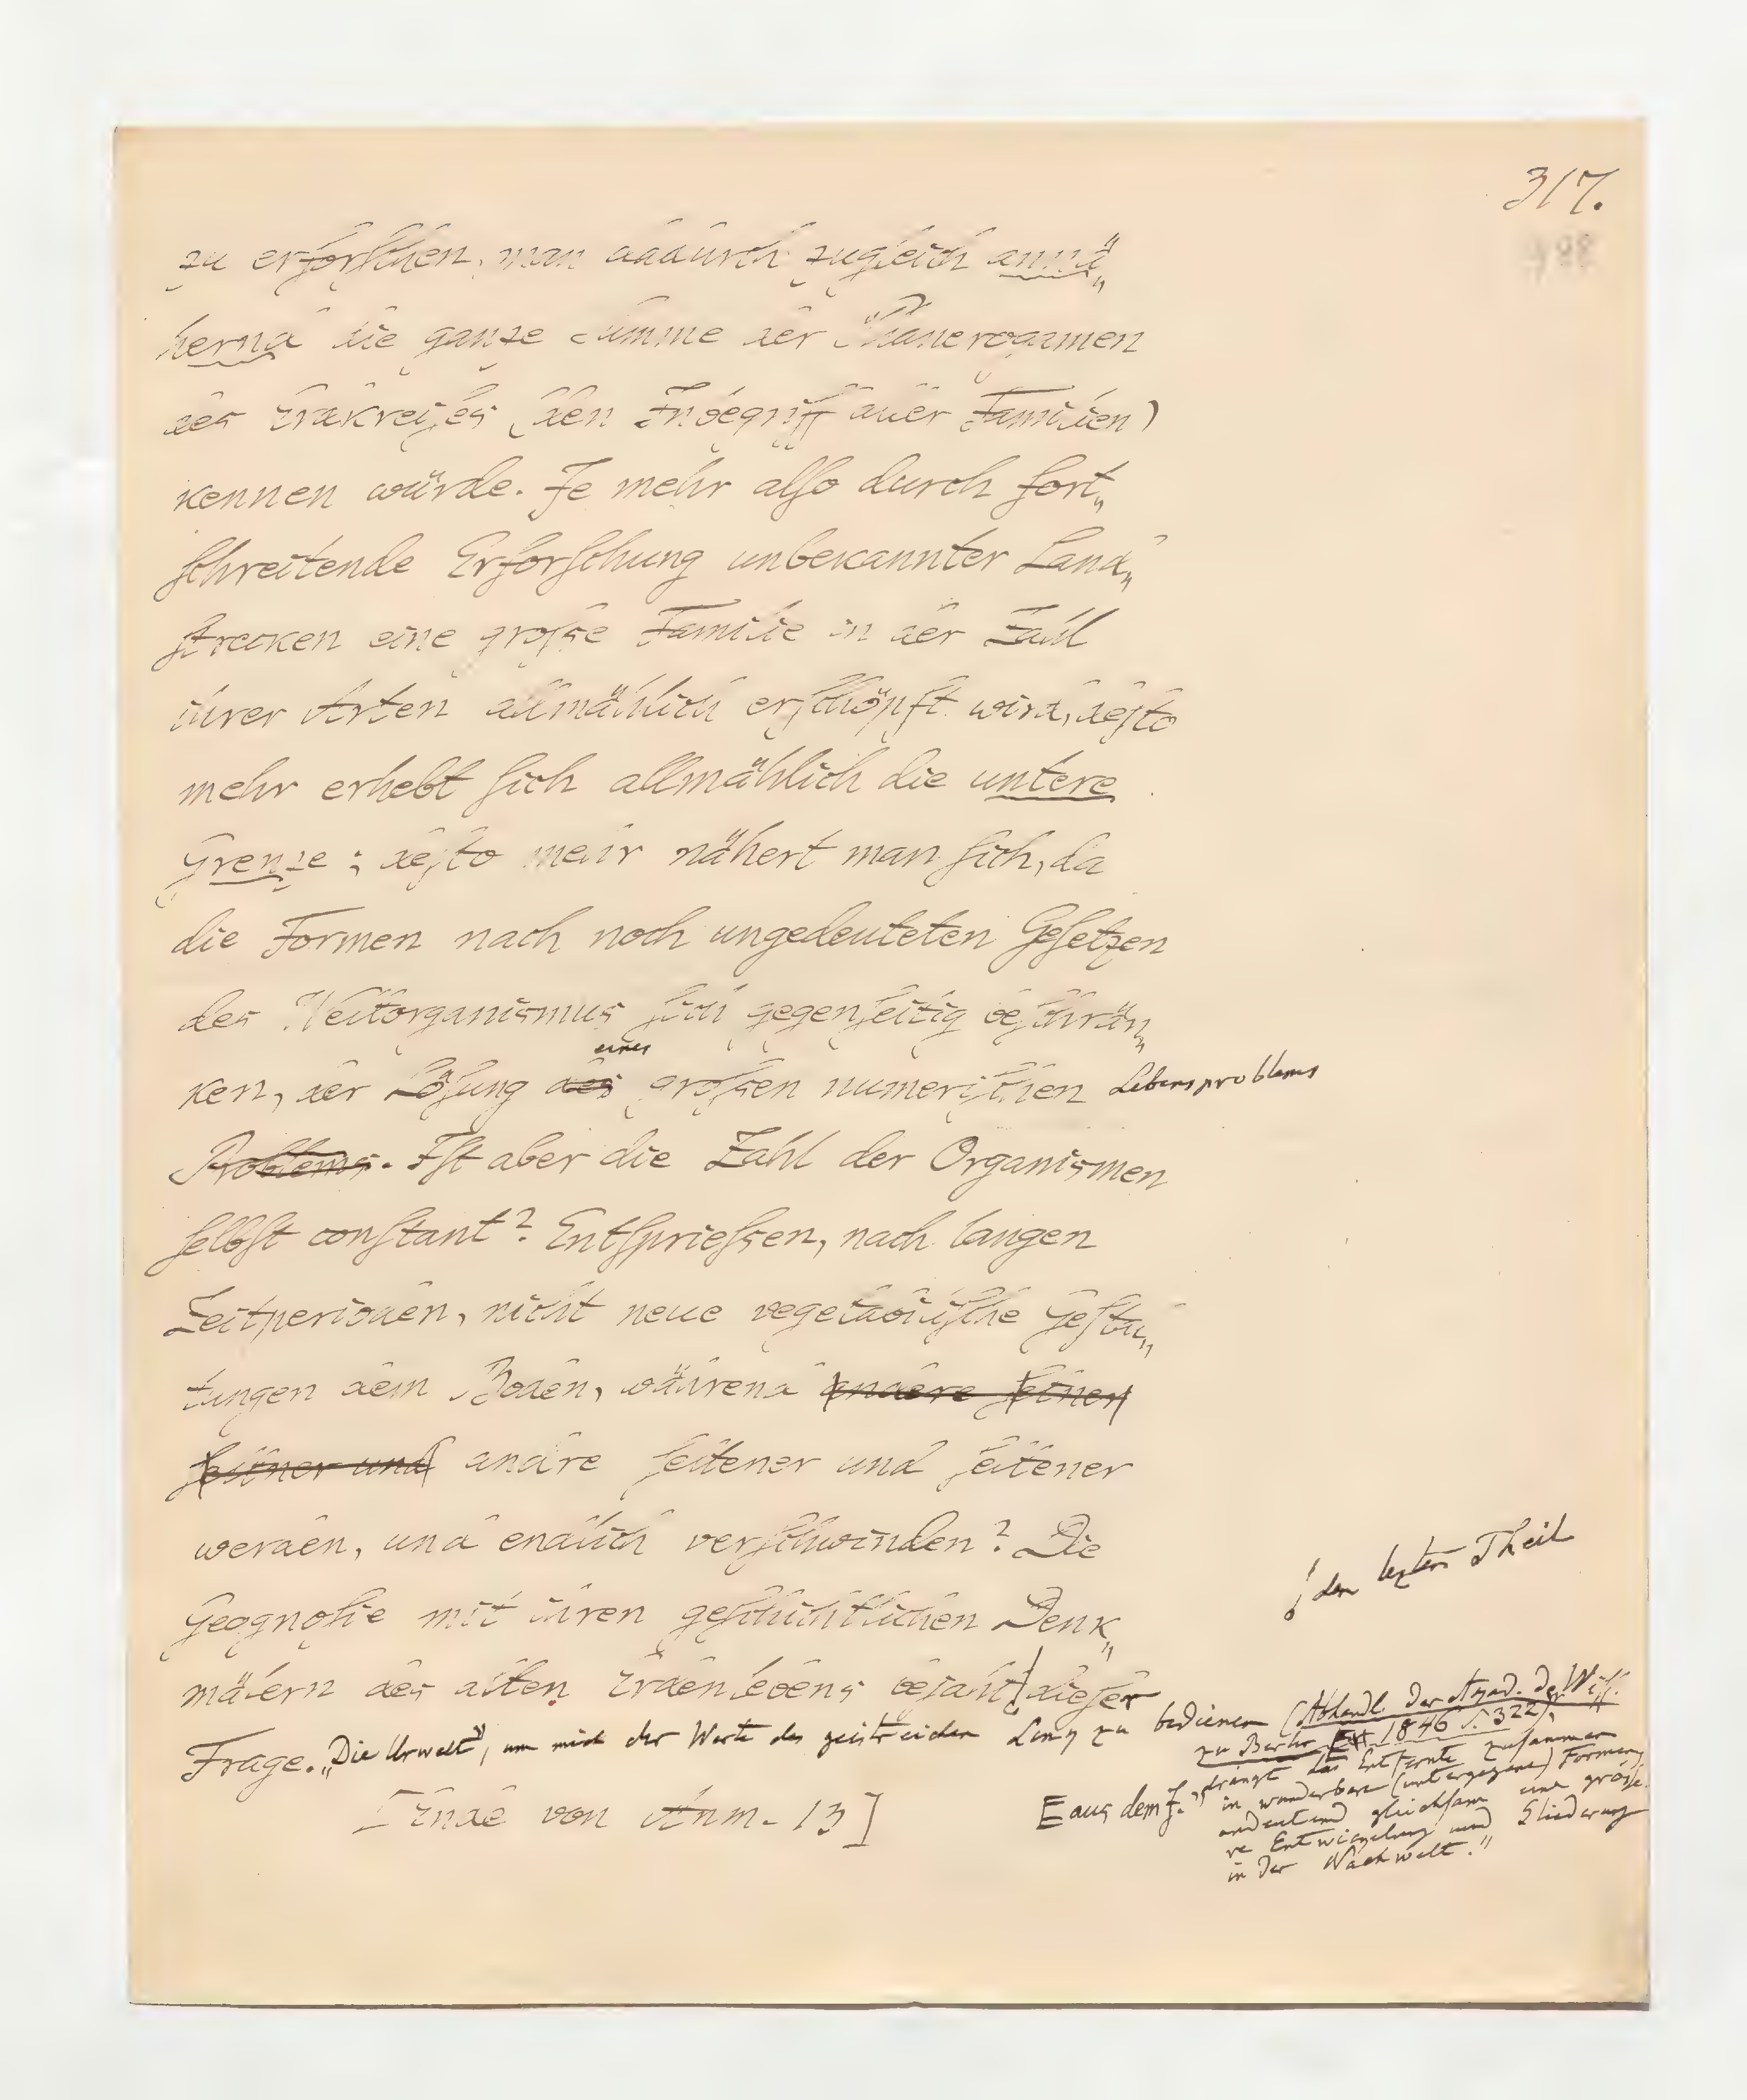 317.
zu erforschen, man dadurch zugleich annä„
hernd die ganze Summe der Phanerogamen
des Erdkreises (den Inbegriff aller Familien)
kennen würde. Je mehr also durch fort„
schreitende Erforschung unbekannter Land„
strecken eine grosse Familie in der Zahl
ihrer Arten allmählich erschöpft wird, desto
mehr erhebt sich allmählich die untere
Grenze; desto mehr nähert man sich, da
die Formen nach noch ungedeuteten Gesetzen
des Weltorganismus sich gegenseitig beschrän„
eines
ken, der Lösung des grossen numerischen Lebensproblems
Problems. Ist aber die Zahl der Organismen
selbst constant? Entspriessen, nach langen
Zeitperioden, nicht neue vegetabilische Gestal„
tungen dem Boden, während andere seltener
seltner und andre seltener und seltener
werden, und endlich verschwinden? Die
Geognosie mit ihren geschichtlichen Denk„
den lezten Theil
mälern des alten Erdenlebens bejaht dieser
Frage. „Die Urwelt", um mich der Worte des geistreichen Link zu bedienen (Abhandl. der Akad. der Wiss.
zu Berlin aus dem J. 1846 S. 322),
„drängt das Entfernte zusammen
in wunderbare (untergegane) Formen,
andeutend gleichsam eine grösse„
re Entwickelung und Gliederung
in der Nachwelt."
[Ende von Anm. 13]